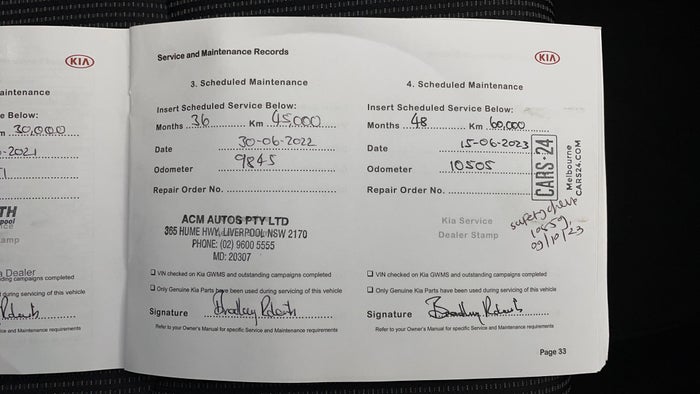 KIA
aintenance
e Below:
m 30,000
-2021
TH
pool
ce
amp
a Dealer
ding campaigns completed
during servicing of this vehicle
ce and Maintenance requirements
Service and Maintenance Records
3. Scheduled Maintenance
Insert Scheduled Service Below:
Months 36 Km 45,000
Date 30-06-2022
Odometer 9845
Repair Order No.
ACM AUTOS PTY LTD
365 HUME HWY, LIVERPOOL NSW 2170
PHONE: (02) 9600 5555
MD: 20307
VIN checked on Kia GWMS and outstanding campaigns completed
Only Genuine Kia Parts have been used during servicing of this vehicle
Signature Bradley Roberts
Refer to your Owner's Manual for specific Service and Maintenance requirements
KIA
4. Scheduled Maintenance
Insert Scheduled Service Below:
Months 48 Km 60,000
Date 15-06-2023
Odometer 10505
Repair Order No.
CARS24
Melbourne
CARS24.COM
safety check
10559,
09/10/23
Kia Service
Dealer Stamp
VIN checked on Kia GWMS and outstanding campaigns completed
Only Genuine Kia Parts have been used during servicing of this vehicle
Signature Bradley Roberts
Refer to your Owner's Manual for specific Service and Maintenance requirements
Page 33